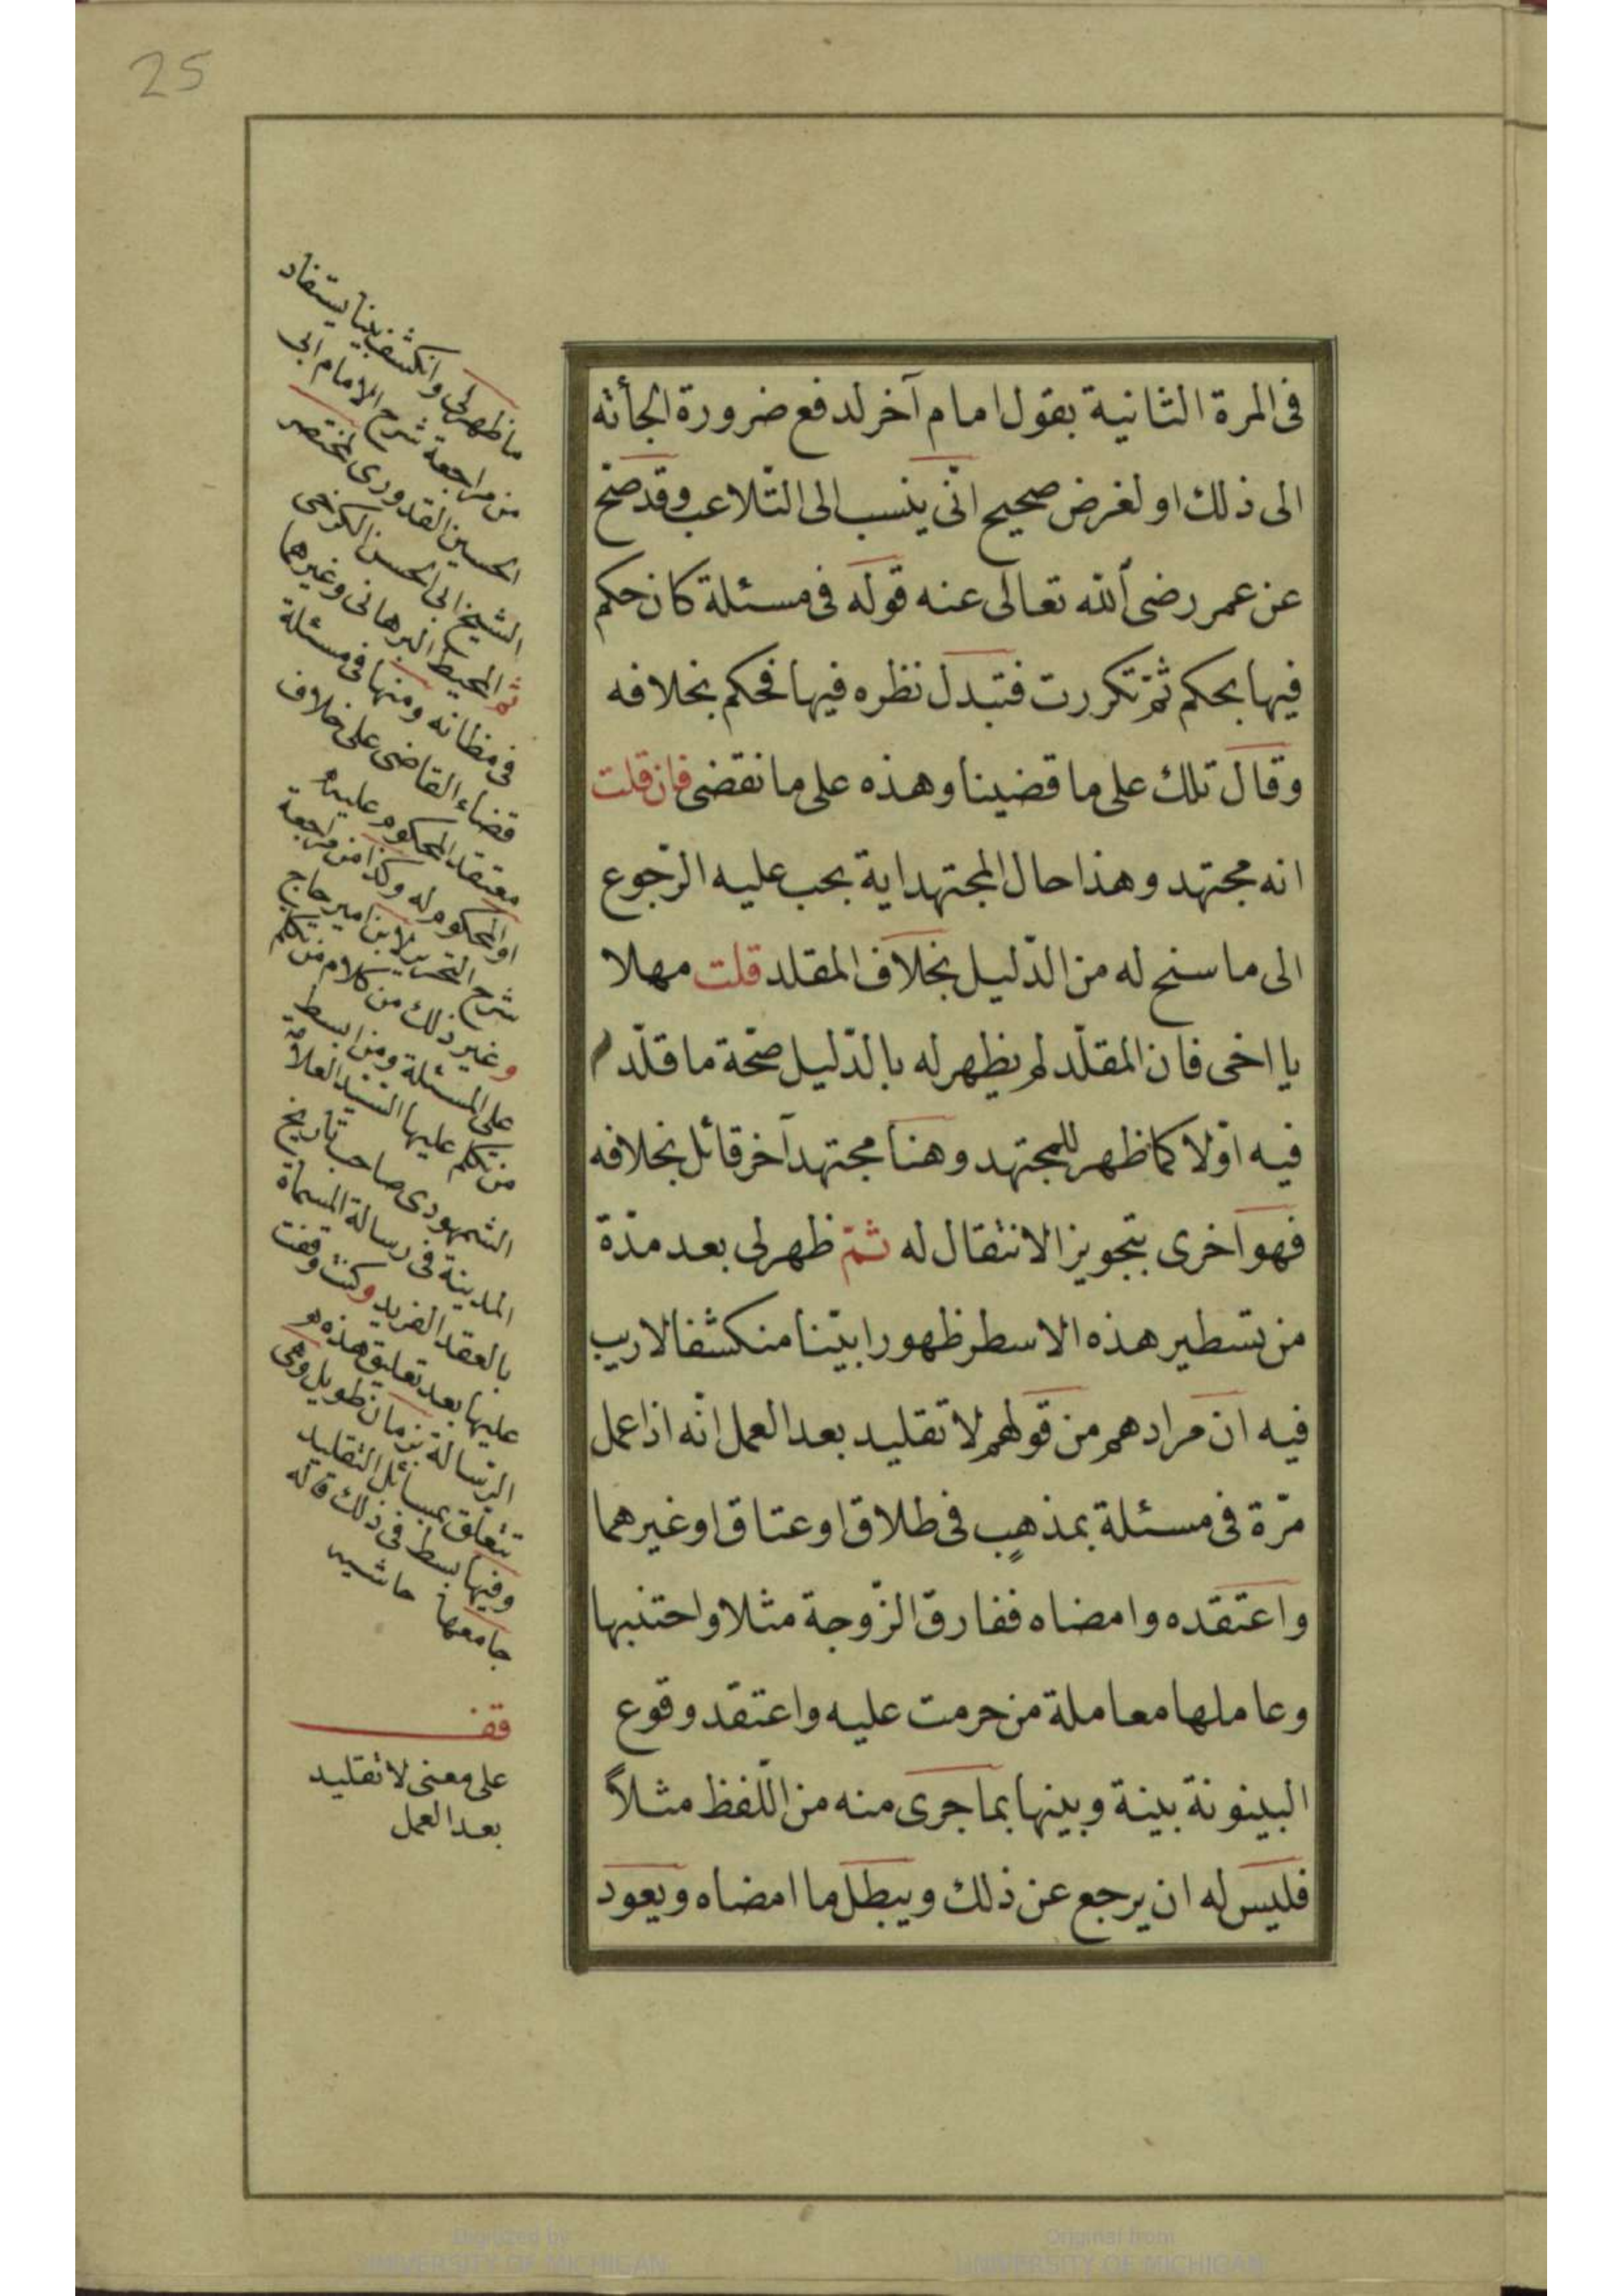 25
فى المرة الثانية بقول امام آخر لدفع ضرورة الجأته
الى ذلك او لغرض صحيح انّى ينسب الى التّلاعب وقد صحّ
عن عمر رضى الله تعالى عنه قوله فى مسئلة كان حكم
فيها بحكم ثمّ تكررت فتبدل نظره فيها فحكم بخلافه
وقال تلك على ما قضينا وهذه على ما نقضى فان قلت
انه مجتهد وهذا حال المجتهد اية يجب عليه الرّجوع
الى ما سنح له من الدّليل بخلاف المقلد قلت مهلا
يا اخى فان المقلّد لم يظهر له بالدّليل صحّة ما قلّد
فيه اوّلا كما ظهر للمجتهد وهنا مجتهد آخر قائل بخلافه
فهو احرى بتجويز الانتقال له ثمّ ظهر لى بعد مدّة
من تسطير هذه الاسطر ظهورا بيّنا منكشفا لا ريب
فيه ان مرادهم من قولهم لا تقليد بعد العمل انّه اذا عمل
مرّة فى مسئلة بمذهب فى طلاق او عتاق او غيرهما
واعتقده وامضاه ففارق الزّوجة مثلا واجتنبها
وعاملها معاملة من حرمت عليه واعتقد وقوع
البينونة بينة وبينها بما جرى منه من اللّفظ مثلاً
فليس له ان يرجع عن ذلك ويبطل ما امضاه ويعود
ما ظهر لى وانكشف بينا يستفاد
من مراجعة شرح الامام ابى
الحسين القدورى لمختصر
الشيخ ابى الحسن الكرخى
ثم المحيط البرهانى وغيرها
فى مظانه ومنها فى مسئلة
قضاء القاضى على خلاف
معتقد المحكوم عليه
او المحكوم له وكذا من مراجعة
شرح التحرير لابن امير حاج
وغير ذلك من كلام من تكلم
على المسئلة ومن ابسط
من تكلم عليها السيد العلامة
السمهودى صاحب تاريخ
المدينة فى رسالة المسماة
بالعقد الفريد وكنت وقفت
عليها بعد تعليق هذه
الرسالة بزمان طويل وهى
تتعلق بمسائل التقليد
وفيها بسط فى ذلك قاله
جامعها حاشيه
قف
على معنى لا تقليد
بعد العمل
Digitized by
UNIVERSITY OF MICHIGAN
Original from
UNIVERSITY OF MICHIGAN